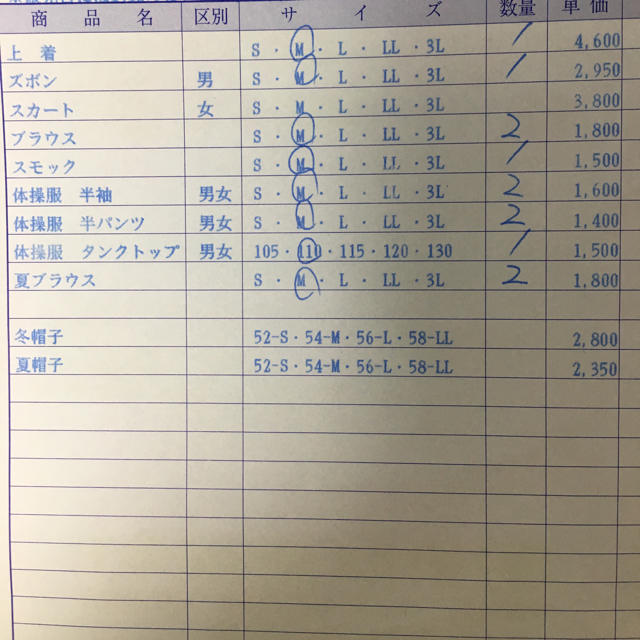 商品名 区別 サイズ 数量 単価
上着 S・M・L・LL・3L 1 4,600
ズボン 男 S・M・L・LL・3L 1 2,950
スカート 女 S・M・L・LL・3L 3,800
ブラウス S・M・L・LL・3L 2 1,800
スモック S・M・L・LL・3L 1 1,500
体操服 半袖 男女 S・M・L・LL・3L 2 1,600
体操服 半パンツ 男女 S・M・L・LL・3L 2 1,400
体操服 タンクトップ 男女 105・110・115・120・130 1 1,500
夏ブラウス S・M・L・LL・3L 2 1,800
冬帽子 52-S・54-M・56-L・58-LL 2,800
夏帽子 52-S・54-M・56-L・58-LL 2,350